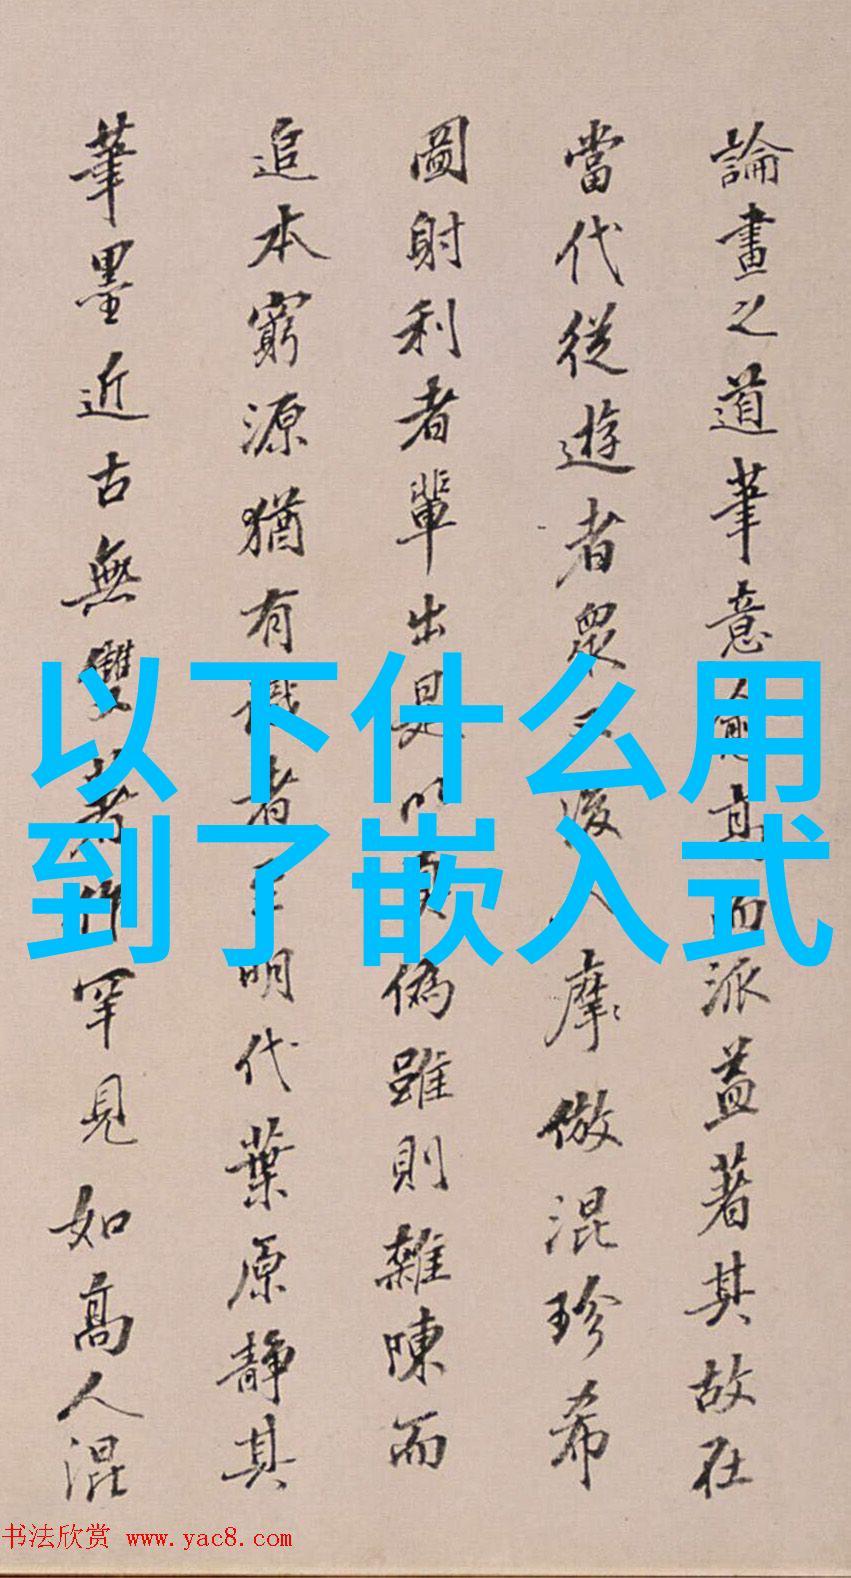 論畫之道筆意愈高而派益著其故在
當代從遊者衆後人摩倣混珍希
圖射利者輩出是以真偽雖則雜陳而
追本窮源猶有識者明代葉原靜其
筆墨近古無雙著作罕見如高人混
以下什么用
到了嵌入式
书法欣赏 www.yac8.com